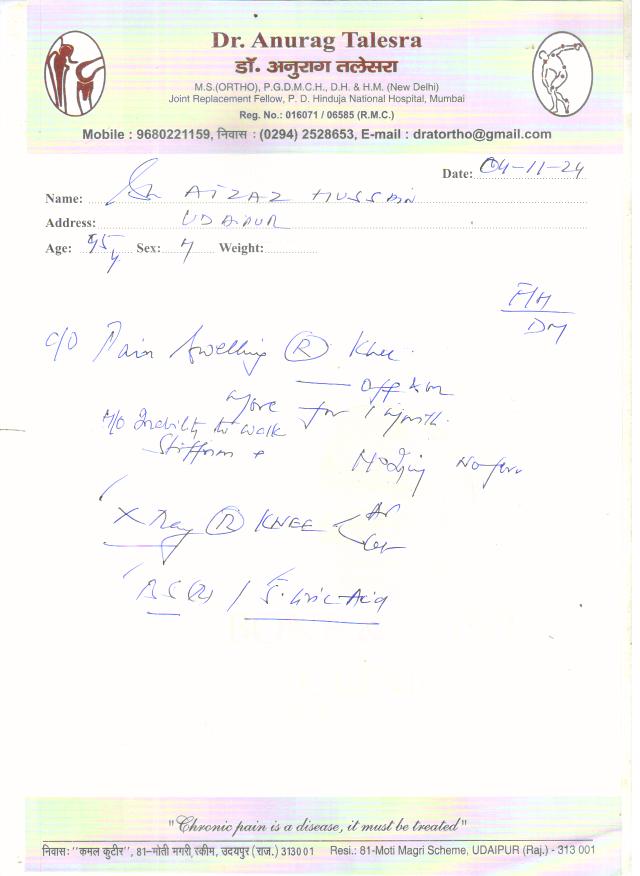 Dr. Anurag Talesra
डॉ. अनुराग तलेसरा
M.S.(ORTHO), P.G.D.M.C.H., D.H. & H.M. (New Delhi)
Joint Replacement Fellow, P. D. Hinduja National Hospital, Mumbai
Reg. No.: 016071 / 06585 (R.M.C.)
Mobile : 9680221159, निवास : (0294) 2528653, E-mail : dratortho@gmail.com
Date: 04-11-24
Name: AIZAZ HUSSAIN
Address: UDAIPUR
Age: Sex: Weight:
F/H
DM
c/o Pain Swelling (R) Knee
off & on
More for 1 month.
Inability to walk
Stiffness +
No fever
X Ray (R) KNEE
/ S. Uric Acid
"Chronic pain is a disease, it must be treated"
निवास: "कमल कुटीर", 81-मोती मगरी स्कीम, उदयपुर (राज.) 313001 Resi.: 81-Moti Magri Scheme, UDAIPUR (Raj.) - 313 001